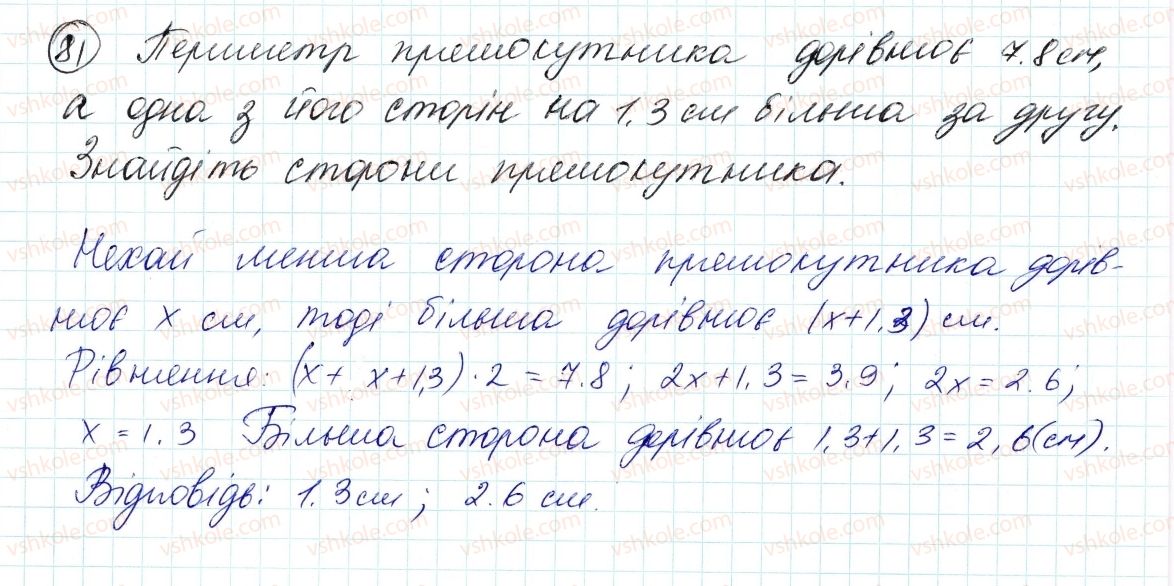 81 Периметр прямокутника дорівнює 7.8 см,
а одна з його сторін на 1,3 см більша за другу.
Знайдіть сторони прямокутника.
Нехай менша сторона прямокутника дорів-
нює x см, тоді більша дорівнює (x+1,3) см.
Рівняння: (x + x+1,3) · 2 = 7.8 ; 2x+1.3=3.9; 2x=2.6;
x = 1.3 Більша сторона дорівнює 1,3+1,3=2,6(см).
Відповідь: 1.3 см ; 2.6 см.